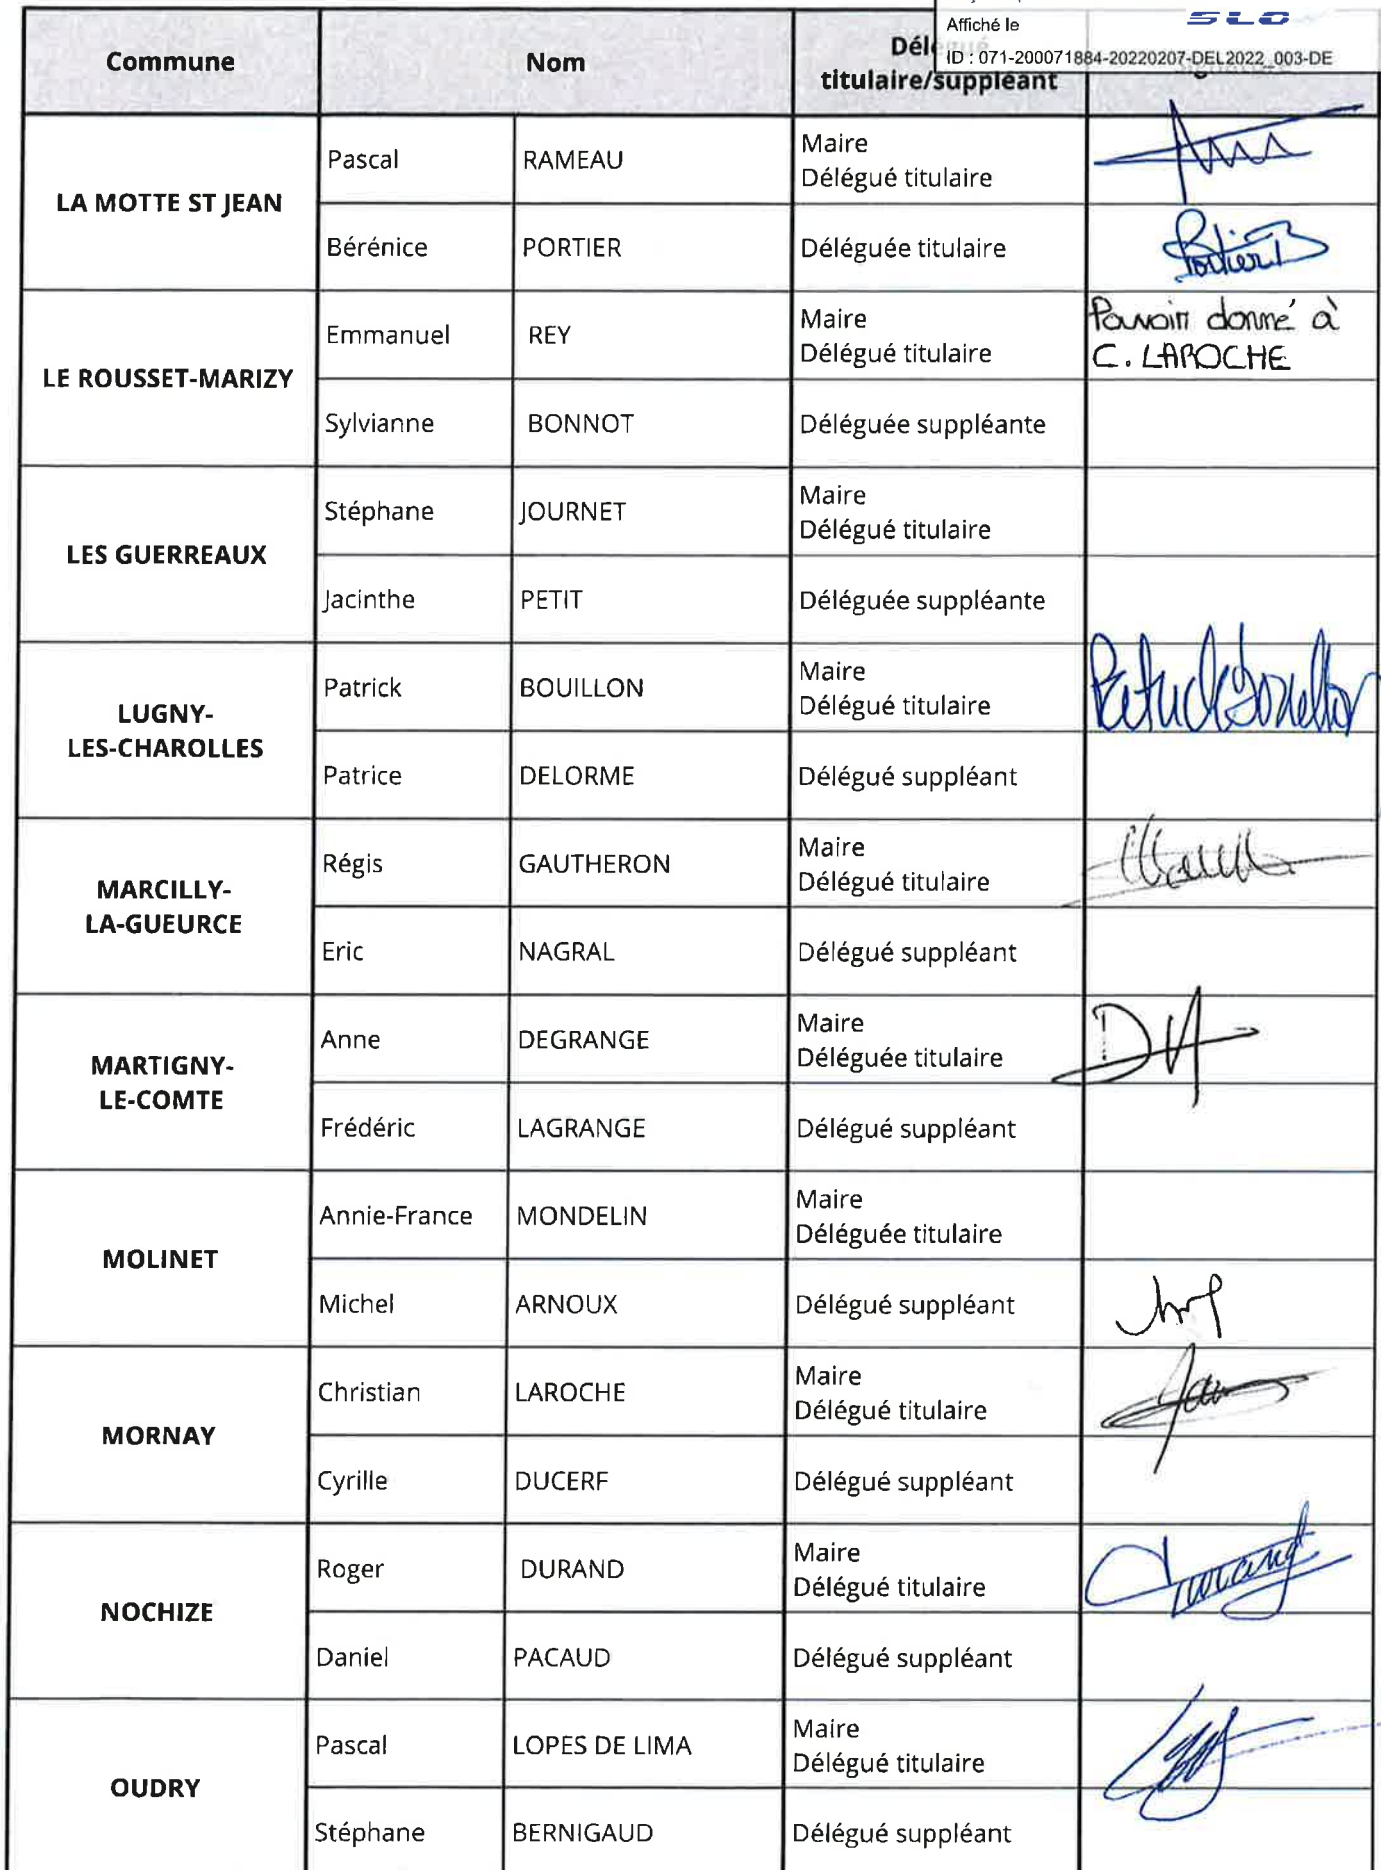 Affiché le
SLO
ID : 071-200071884-20220207-DEL2022_003-DE
Commune Nom Délégué
titulaire/suppléant
LA MOTTE ST JEAN
Pascal RAMEAU Maire
Délégué titulaire
Bérénice PORTIER Déléguée titulaire Portier B
LE ROUSSET-MARIZY
Emmanuel REY Maire
Délégué titulaire
Pouvoir donné à
C. LAROCHE
Sylvianne BONNOT Déléguée suppléante
LES GUERREAUX
Stéphane JOURNET Maire
Délégué titulaire
Jacinthe PETIT Déléguée suppléante
LUGNY-
LES-CHAROLLES
Patrick BOUILLON Maire
Délégué titulaire
Patrice DELORME Délégué suppléant
MARCILLY-
LA-GUEURCE
Régis GAUTHERON Maire
Délégué titulaire
Eric NAGRAL Délégué suppléant
MARTIGNY-
LE-COMTE
Anne DEGRANGE Maire
Déléguée titulaire
Frédéric LAGRANGE Délégué suppléant
MOLINET
Annie-France MONDELIN Maire
Déléguée titulaire
Michel ARNOUX Délégué suppléant
MORNAY
Christian LAROCHE Maire
Délégué titulaire
Cyrille DUCERF Délégué suppléant
NOCHIZE
Roger DURAND Maire
Délégué titulaire
Daniel PACAUD Délégué suppléant
OUDRY
Pascal LOPES DE LIMA Maire
Délégué titulaire
Stéphane BERNIGAUD Délégué suppléant